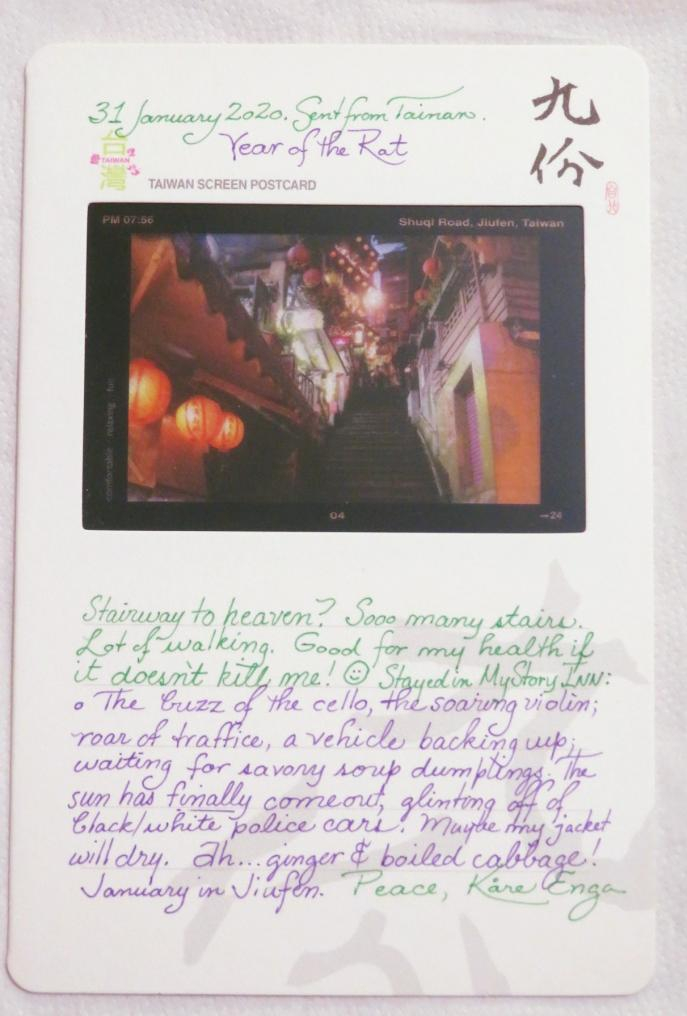 31 January 2020. Sent from Tainan.
Year of the Rat
九份
台灣
TAIWAN
TAIWAN SCREEN POSTCARD
PM 07:56
Shuqi Road, Jiufen, Taiwan
comfortable relaxing fun
04
24
Stairway to heaven? Sooo many stairs.
Lot of walking. Good for my health if
it doesn't kill me! ☺ Stayed in MyStory INN:
o The buzz of the cello, the soaring violin;
roar of traffice, a vehicle backing up;
waiting for savory soup dumplings. The
sun has finally comeout, glinting off of
black/white police cars. Maybe my jacket
will dry. Ah... ginger & boiled cabbage!
January in Jiufen. Peace, Kåre Enga